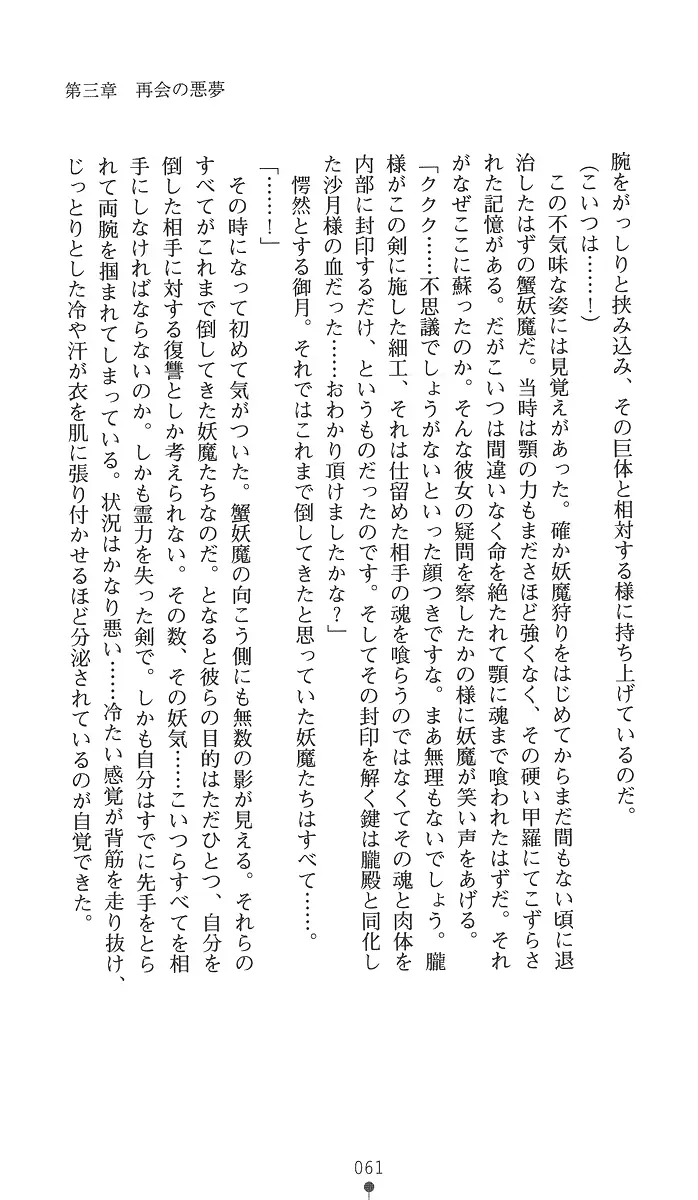 第三章　再会の悪夢
腕をがっしりと挟み込み、その巨体と相対する様に持ち上げているのだ。
(こいつは……！)
　この不気味な姿には見覚えがあった。確か妖魔狩りをはじめてからまだ間もない頃に退
治したはずの蟹妖魔だ。当時は顎の力もまださほど強くなく、その硬い甲羅にてこずらさ
れた記憶がある。だがこいつは間違いなく命を絶たれて顎に魂まで喰われたはずだ。それ
がなぜここに蘇ったのか。そんな彼女の疑問を察したかの様に妖魔が笑い声をあげる。
「ククク……不思議でしょうがないといった顔つきですな。まあ無理もないでしょう。朧
様がこの剣に施した細工、それは仕留めた相手の魂を喰らうのではなくてその魂と肉体を
内部に封印するだけ、というものだったのです。そしてその封印を解く鍵は朧殿と同化し
た沙月様の血だった……おわかり頂けましたかな？」
　愕然とする御月。それではこれまで倒してきたと思っていた妖魔たちはすべて……。
「……！」
　その時になって初めて気がついた。蟹妖魔の向こう側にも無数の影が見える。それらの
すべてがこれまで倒してきた妖魔たちなのだ。となると彼らの目的はただひとつ、自分を
倒した相手に対する復讐としか考えられない。その数、その妖気……こいつらすべてを相
手にしなければならないのか。しかも霊力を失った剣で。しかも自分はすでに先手をとら
れて両腕を掴まれてしまっている。状況はかなり悪い……冷たい感覚が背筋を走り抜け、
じっとりとした冷や汗が衣を肌に張り付かせるほど分泌されているのが自覚できた。
061